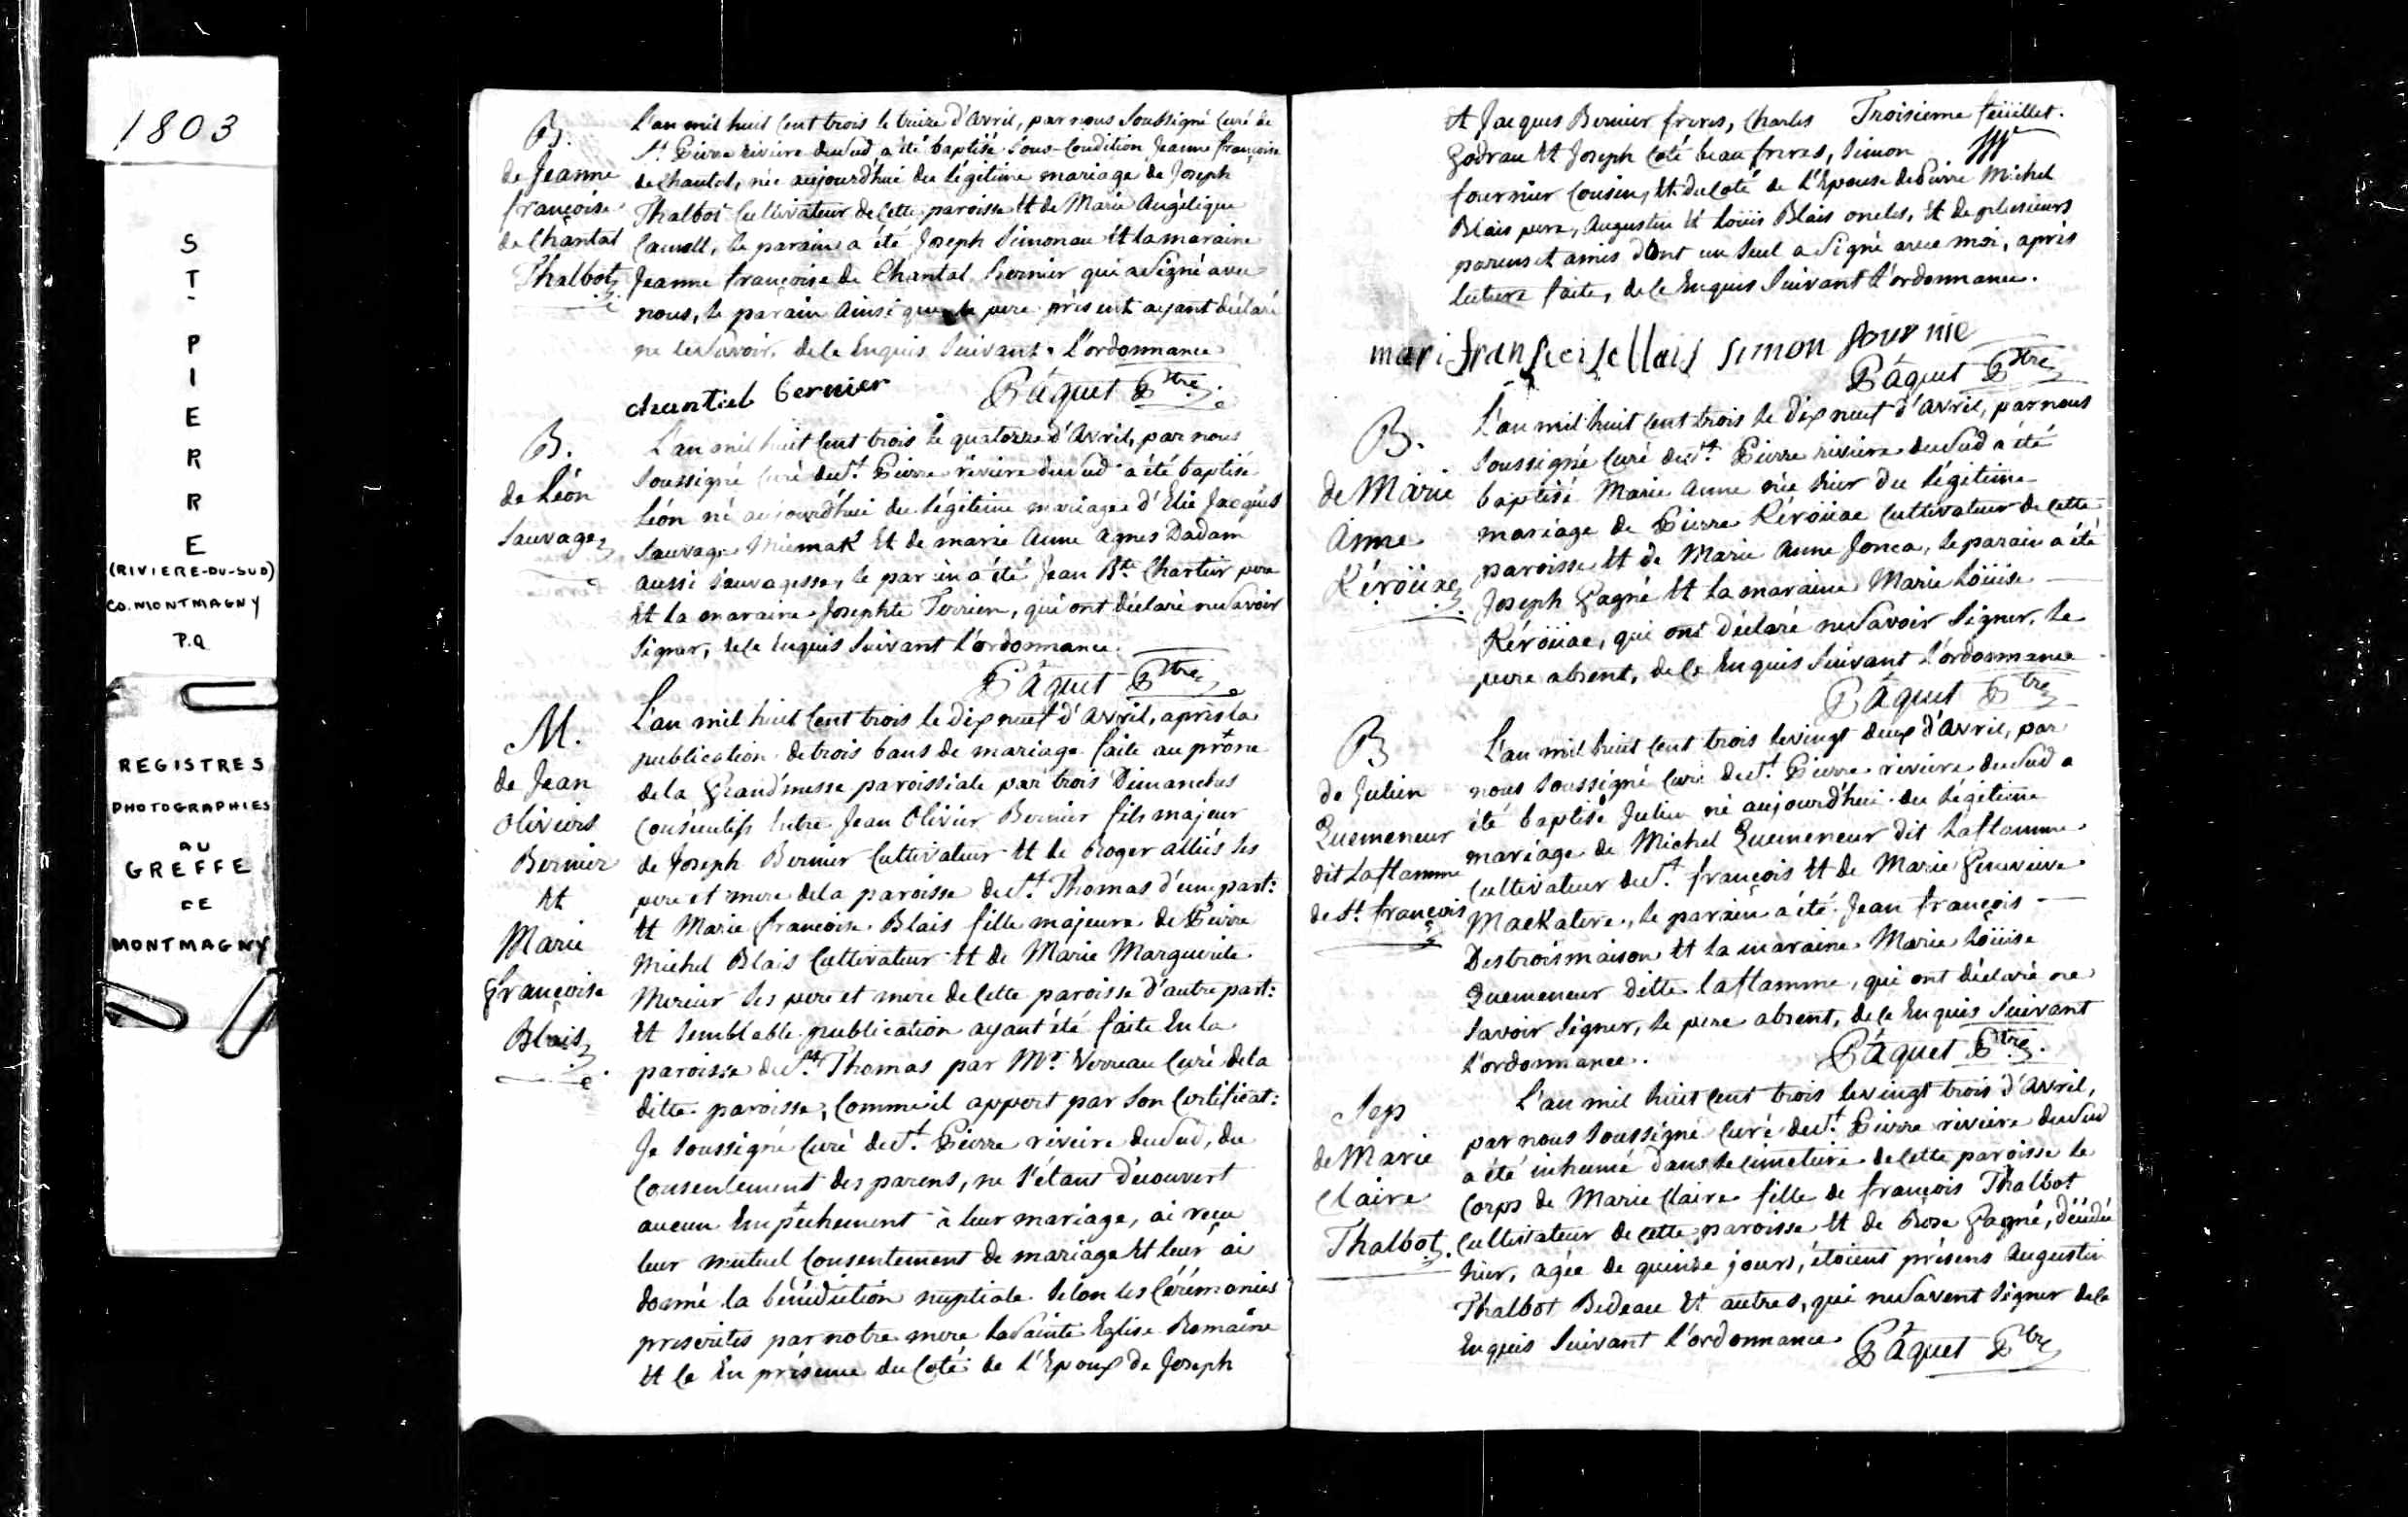 1803
ST-PIERRE
(RIVIERE-DU-SUD)
CO. MONTMAGNY
P.Q
REGISTRES
PHOTOGRAPHIES
AU
GREFFE
DE
MONTMAGNY
B.
de Jeanne
françoise
de Chantal
Thalbot
L'an mil huit cent trois le treize d'Avril, par nous soussigné Curé de
St Pierre riviere du Sud a été baptisé sous-Condition Jeanne françoise
de Chantal, née aujourd'hui du légitime mariage de Joseph
Thalbot Cultivateur de Cette paroisse Et de Marie Angélique
le parain a été Joseph Simonau Et la maraine
Jeanne françoise de Chantal Bernier qui a signé avec
nous, le parain ainsi que le pere présent ayant déclaré
ne le savoir, de ce Enquis suivant l'ordonnance
chantiel bernier Pâquet Ptre
B.
de Léon
Sauvage
L'an mil huit Cent trois le quatorze d'Avril, par nous
soussigné Curé de St. Pierre riviere du Sud a été baptisé
Léon né aujourd'hui du légitime mariage d'Elie Jacques
Sauvage Miemak Et de marie Anne Agnes Dadam
aussi Sauvagesse, le parain a été Jean Bte. Chartier pere
Et la maraine Josephte Terrien, qui ont déclaré ne savoir
signer, de ce Enquis suivant l'ordonnance.
Pâquet Ptre
M.
de Jean
Oliviers
Bernier
Et
Marie
Françoise
Blais
L'an mil huit Cent trois le dix neuf d'Avril, après la
publication de trois bans de mariage faite au prône
de la Grand'messe paroissiale par trois Dimanches
Consécutifs Entre Jean Olivier Bernier fils majeur
de Joseph Bernier Cultivateur Et de Roger alliés ses
pere et mere de la paroisse de St. Thomas d'une part:
Et Marie françoise Blais fille majeure de Pierre
Michel Blais Cultivateur Et de Marie Marguerite
Mercier ses pere et mere de Cette paroisse d'autre part:
Et semblable publication ayant été faite En la
paroisse de St. Thomas par Mr. Verreau Curé de la
ditte paroisse, Comme il appert par son Certificat:
Je soussigné Curé de St. Pierre riviere du Sud, du
Consentement des parens, ne s'étant découvert
aucun Empêchement à leur mariage, ai reçu
leur mutuel Consentement de mariage Et leur ai
donné la bénédiction nuptiale selon les Cérémonies
prescrites par notre mere la Sainte Eglise Romaine
Et Ce En présence du Coté de l'Epoux de Joseph
Et Jacques Bernier freres, Charles Troisieme feüillet.
Godrau Et Joseph Coté beau freres, Simon
fournier Cousin, Et du Coté de l'Epouse de Pierre Michel
Blais pere, Augustin Et Loüis Blais oncles, Et de plusieurs
parens et amis dont un seul a signé avec moi, après
lecture faite, de Ce Enquis suivant l'ordonnance.
simon fournie
Pâquet Ptre
B.
de Marie
Anne
Kéroüac
L'an mil huit Cent trois le dix neuf d'Avril, par nous
soussigné Curé de St. Pierre riviere du Sud a été
baptisé Marie Anne née hier du légitime
mariage de Pierre Kéroüac Cultivateur de Cette
paroisse Et de Marie Anne Jonca, le parain a été
Joseph Gagné Et la maraine Marie Loüise
Kéroüac, qui ont déclaré ne savoir signer, le
pere absent, de Ce Enquis suivant l'ordonnance
Pâquet Ptre
B
de Julien
Quemeneur
dit Laflamme
de St. françois
L'an mil huit Cent trois le vingt deux d'Avril, par
nous soussigné Curé de St. Pierre riviere du Sud a
été baptisé Julien né aujourd'hui du légitime
mariage de Michel Quemeneur dit Laflamme
Cultivateur de St. françois Et de Marie Geneviève
Mackatere, le parain a été Jean françois
Destroismaison Et la maraine Marie Loüise
Quemeneur ditte laflamme, qui ont déclaré ne
savoir signer, le pere absent, de Ce Enquis suivant
l'ordonnance. Pâquet Ptre.
Sep
de Marie
Claire
Thalbot
L'an mil huit Cent trois le vingt trois d'Avril,
par nous soussigné Curé de St. Pierre riviere du Sud
a été inhumé dans le cimetiere de Cette paroisse le
Corps de Marie Claire fille de françois Thalbot
Cultivateur de cette paroisse Et de Rose Gagné, décédée
hier, agée de quinze jours, étoient présens Augustin
Thalbot Bedeau Et autres, qui ne savent signer de Ce
Enquis suivant l'ordonnance Pâquet Ptre